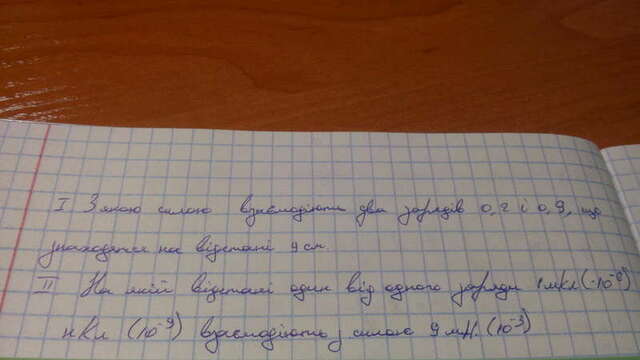 I З якою силою взаємодіють два зарядів 0,2 і 0,9, що
знаходяться на відстані 9 см.
II На якій відстані один від одного заряди 1 мкл (-10⁻⁶)
нКл (10⁻⁹) взаємодіють з силою 9 мН. (10⁻³)